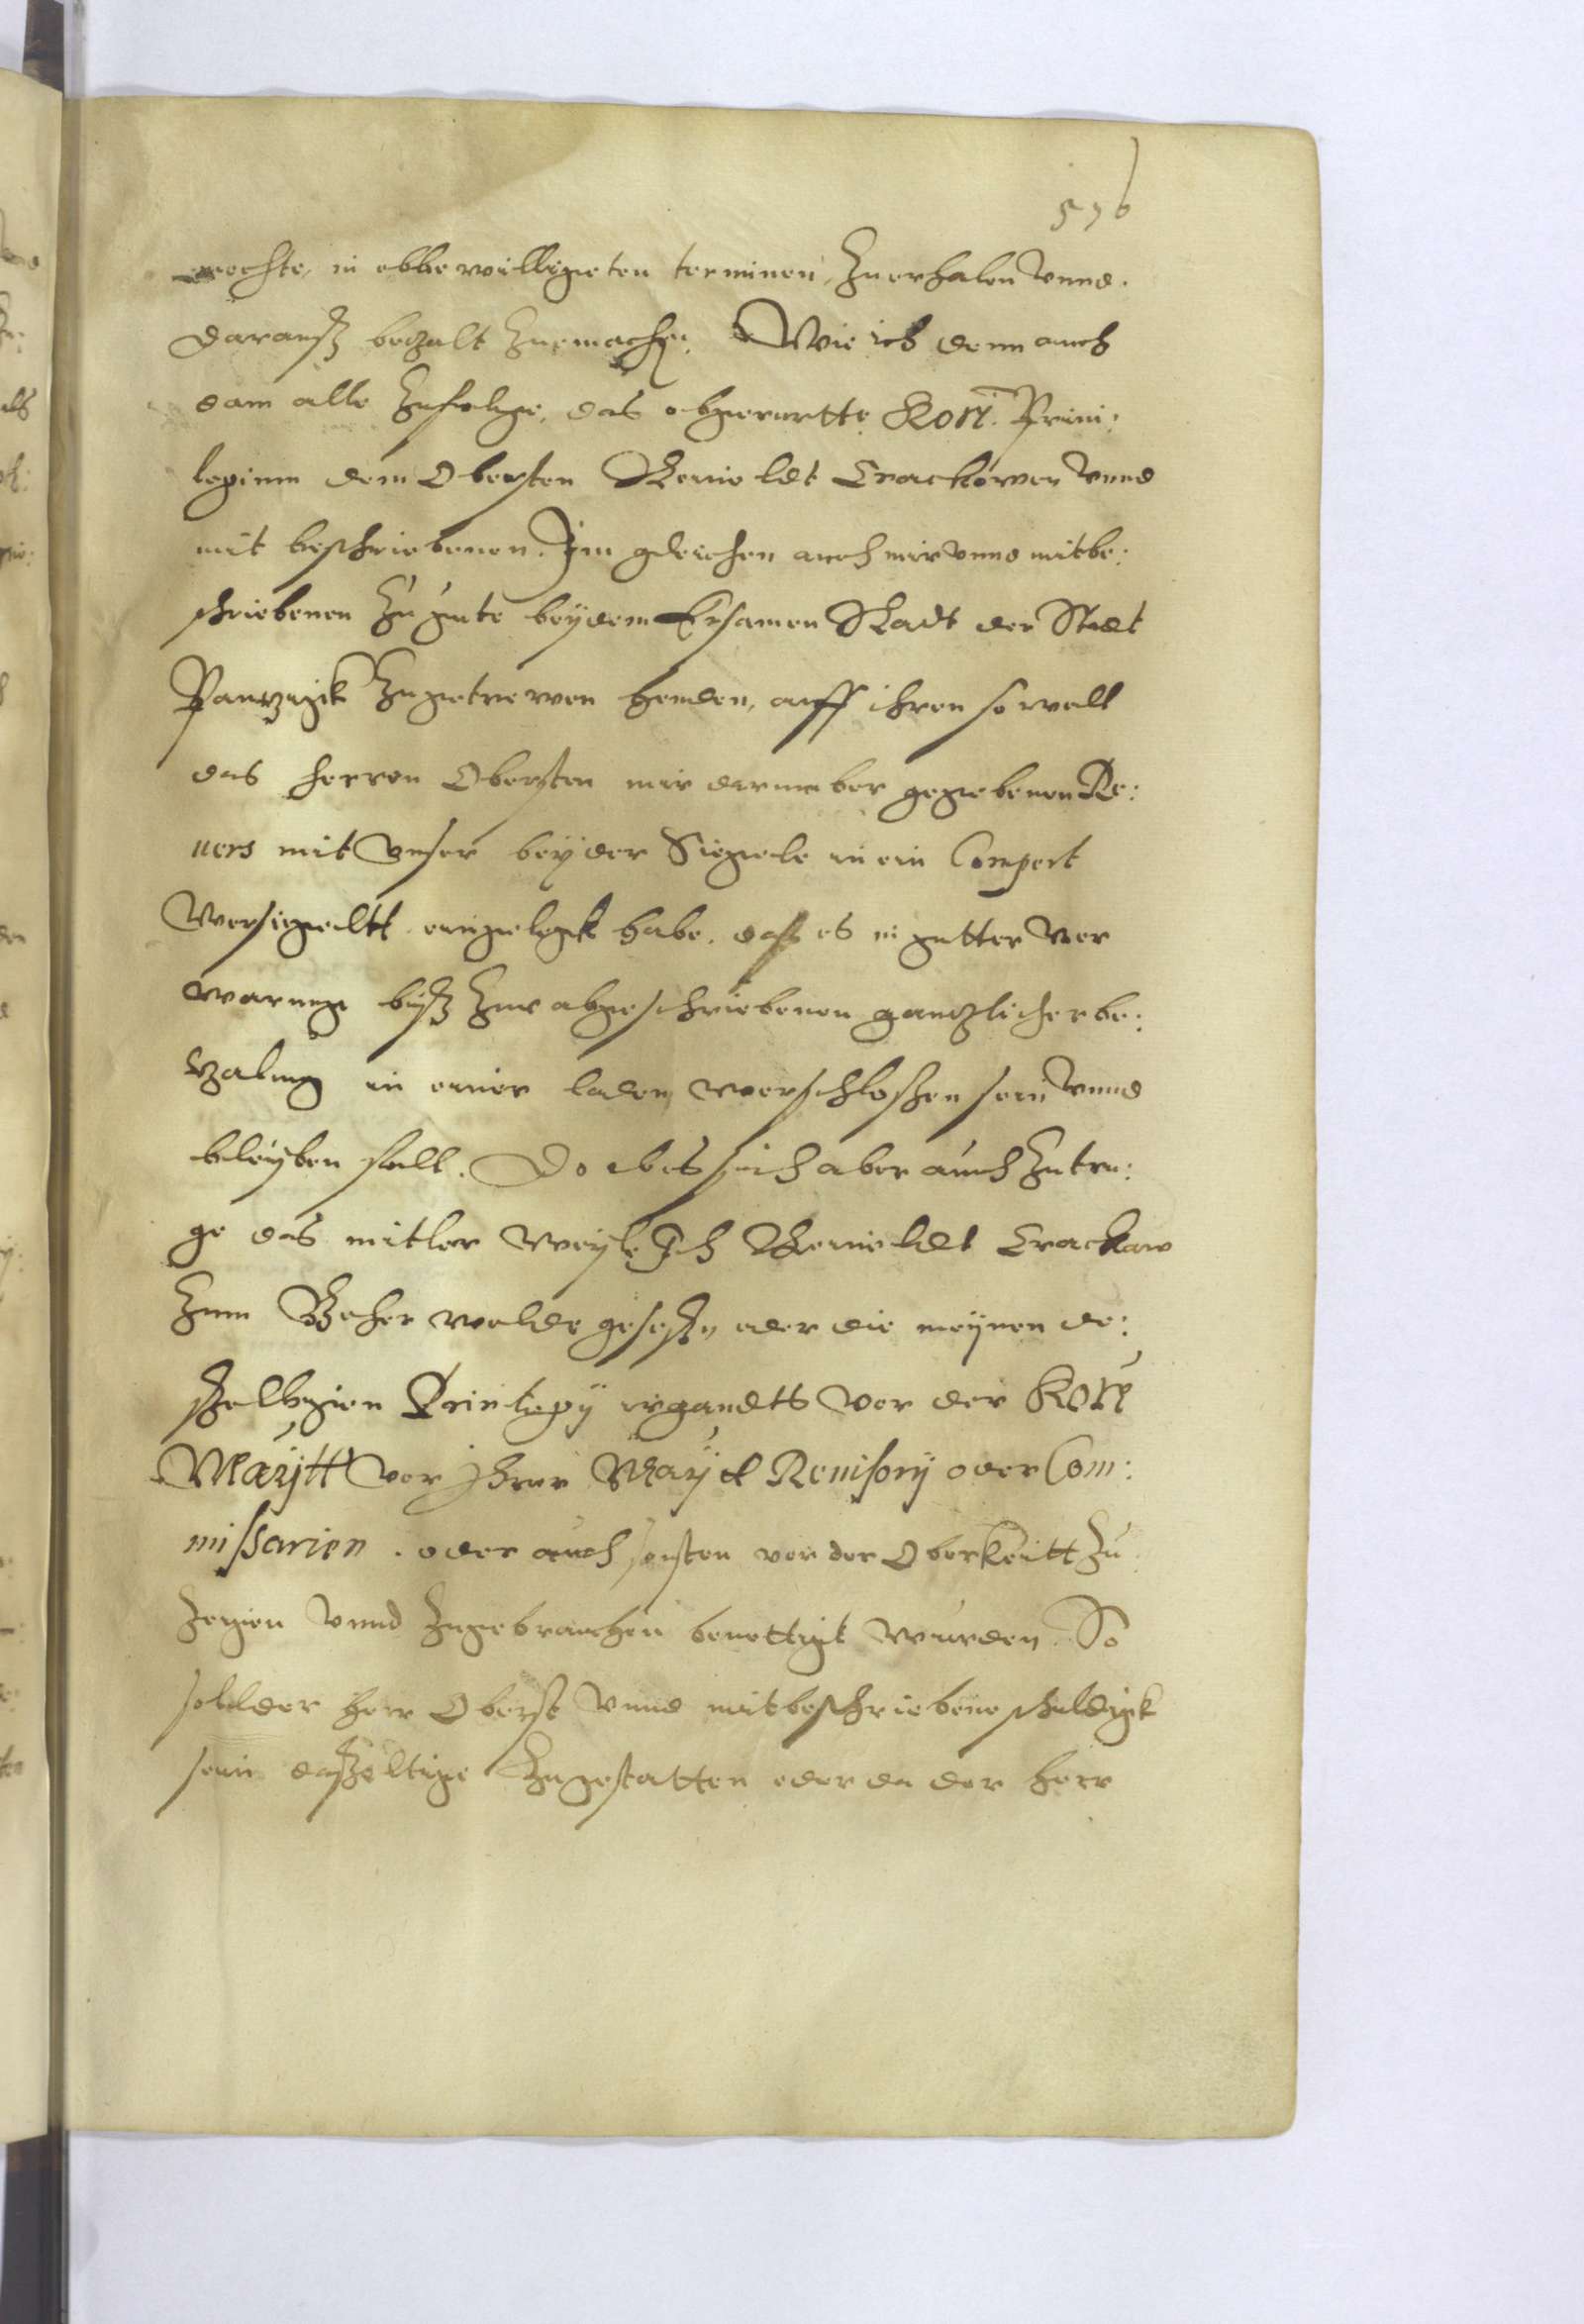 576
mochte, in obbewilligeten terminen, Zuerhalen vnnd.
darauß bezalt Zuemachen. Wie ich denn auch
dem alle Zufolge, das obgerurtte Kon: Priui:
legium dem Obersten Reinoldt Crackowen vnnd
mit beschriebenen. Im gleichen auch mir vnnd mitbe:
schriebenen Zu gute bey dem Ersamen Radt der Stadt
Dantzigk Zu getrewen henden, auff ihren so woll
des herren Obersten mir darueber gegebenen Re:
uers mit vnser beyder Siegele in ein Compert
Versiegeltt eingelegt habe, daß es in gutter ver
warung biß Zur abgeschriebenen gantzlicher be:
tzalung in einer laden verschloßen sein vnnd
bleyben soll. Do eb es sich aber auch Zutru:
ge das mitler weyle Ich Reinoldt Crackaw
Zum walde geseßen oder die meynen de:
ßelbigen Priuilegij irgandts vor der Kon:
Maytt vor Ihrer Mayt Reuisorij oder Com:
missarien. oder auch sonsten vor der Oberkeitt Zu
Zeigen vnnd Zugebrauchen benottigt wurden. So
soll der herr Oberst vnnd mitbeschriebene schuldigk
sein daßelbige Zugestatten oder da der herr